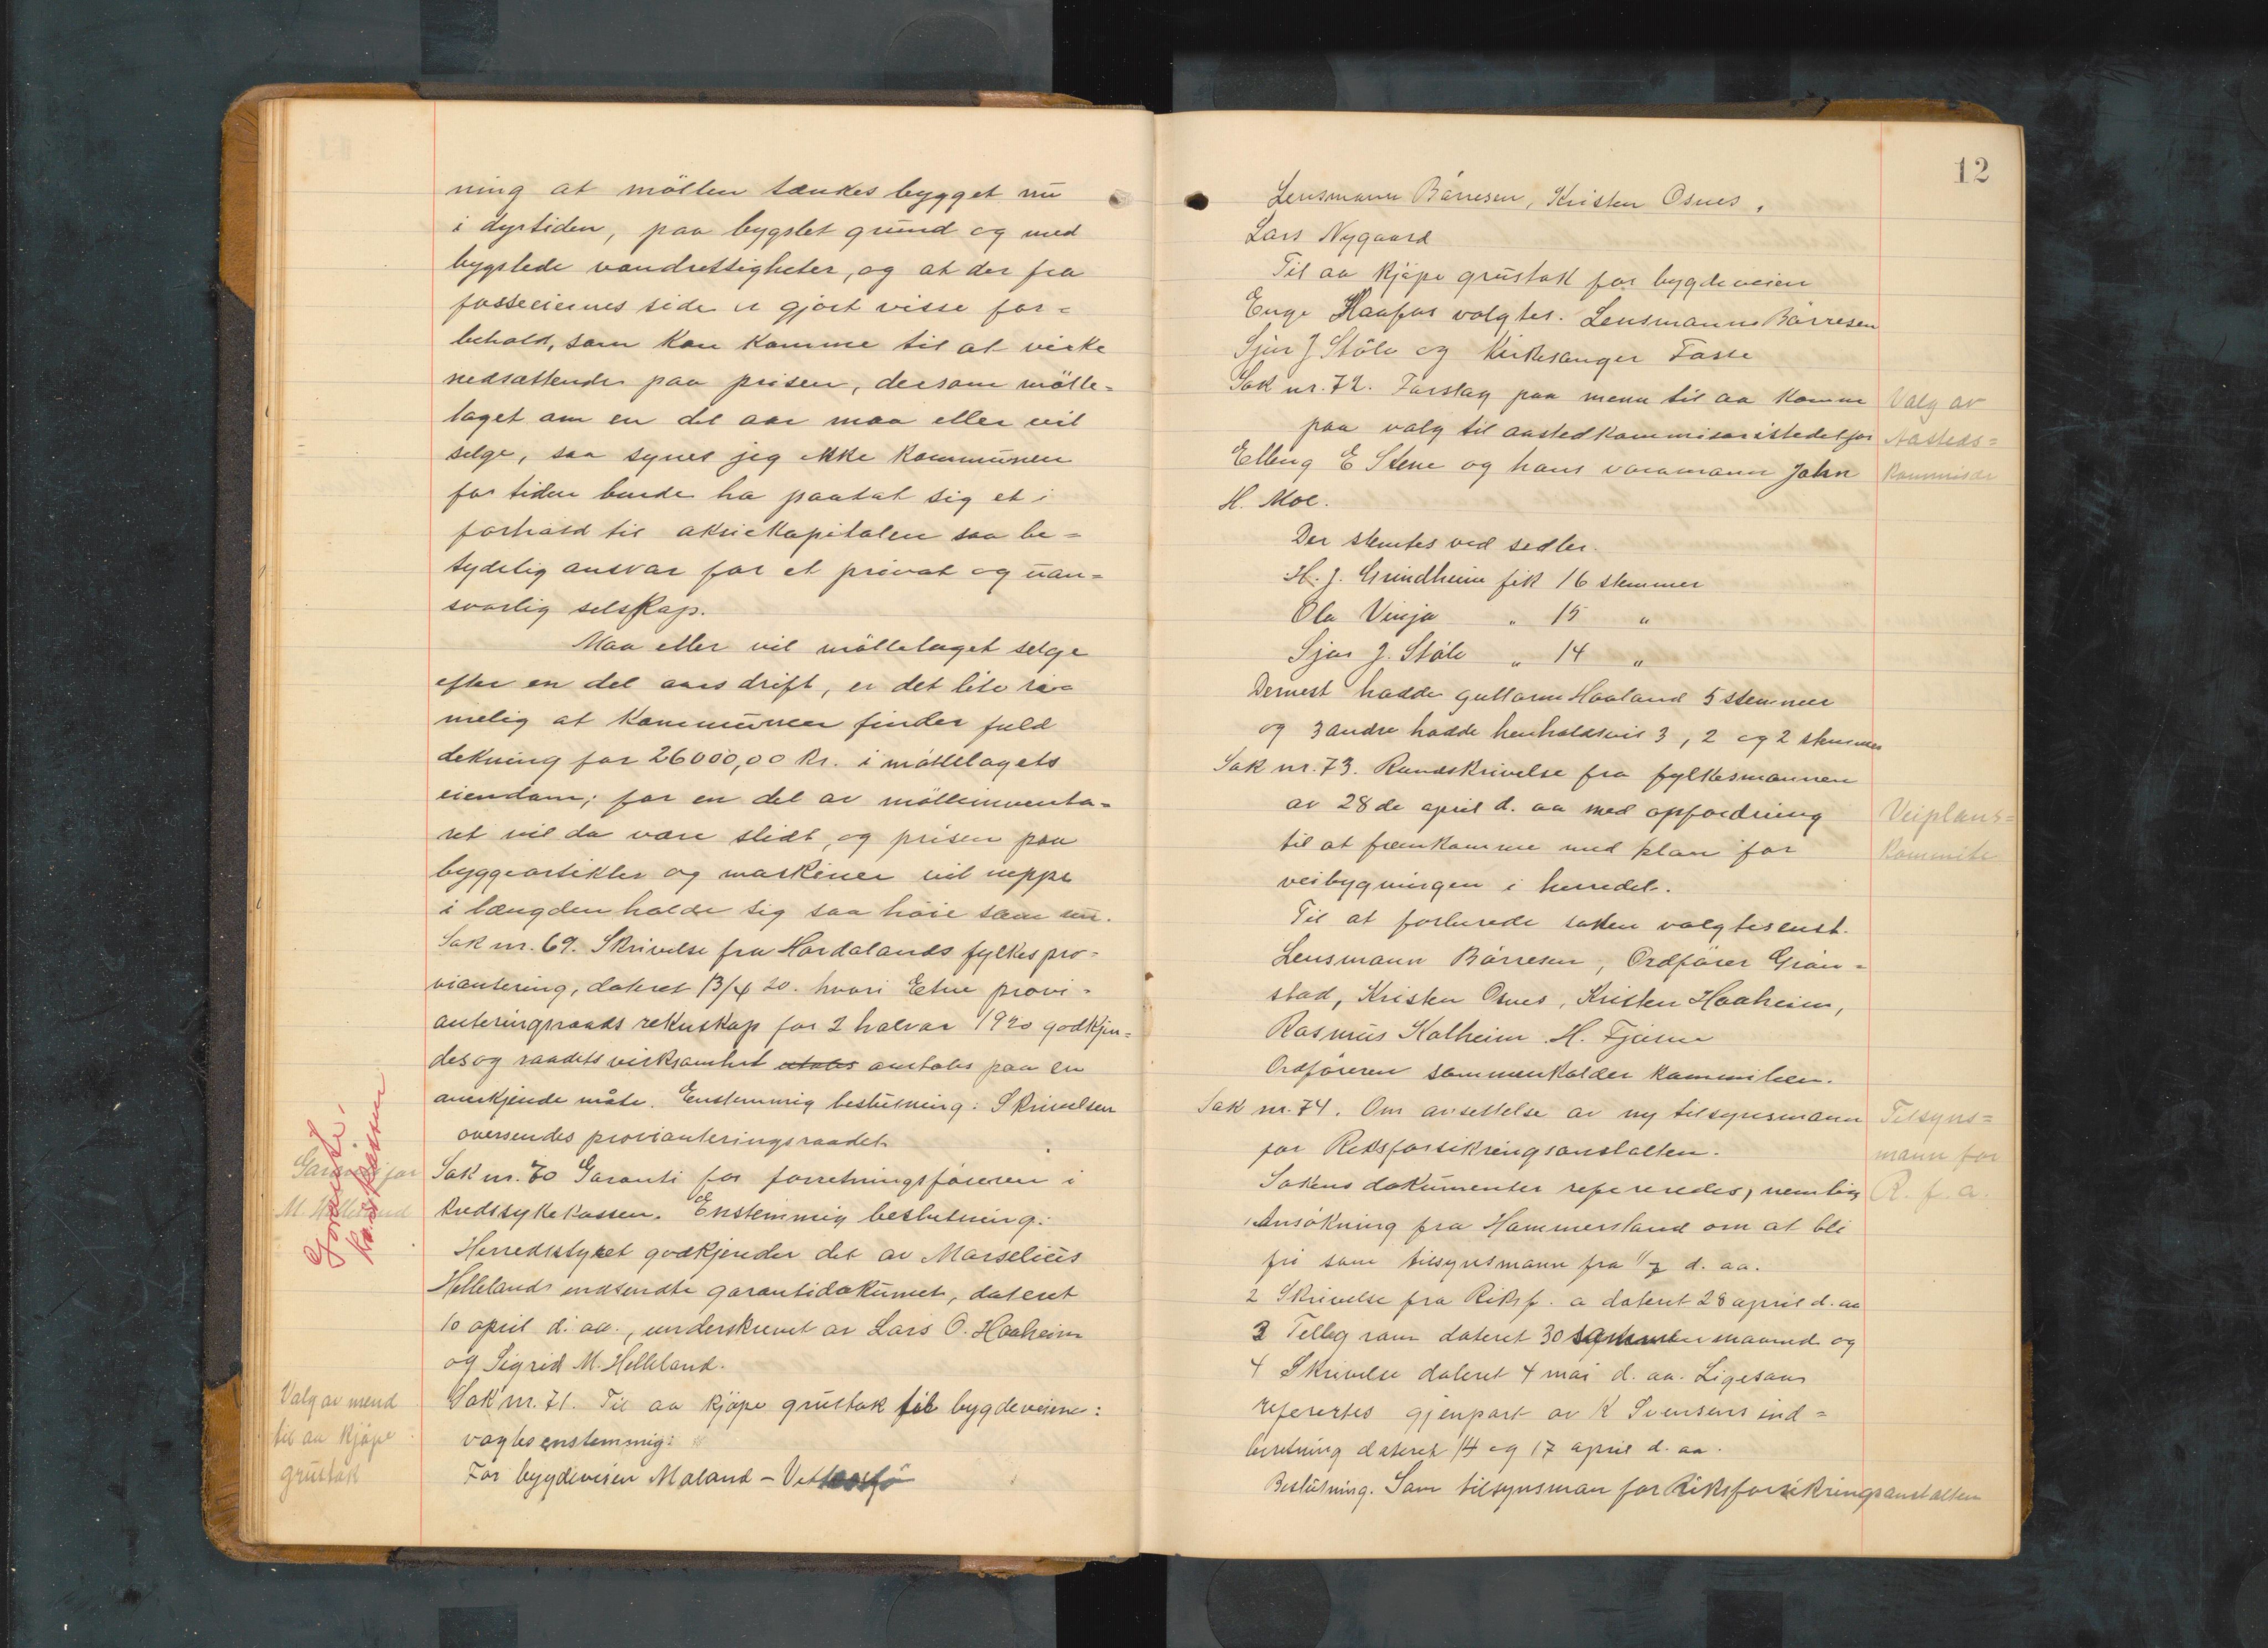 ning at möllen tænkes bygget nu
i dyrtiden, paa bygslet grund og med
bygslede vandrettigheter, og at der fra
fosseeiernes side er gjort visse for=
behold, som kan komme til at virke
nedsættende paa prisen, dersom mölle=
laget om en del aar maa eller vil
selge, saa synes jeg ikke kommunen
for tiden burde ha paatat sig et i
forhold til aktiekapitalen saa be=
tydelig ansvar for et privat og uan=
svarlig selskap.
Maa eller vil möllelaget selge
efter en del aars drift, er det lite ri=
melig at kommunen finder fuld
dekning for 26000,00 kr. i möllelagets
eiendom; for en del av mölleinventa=
ret vil da være slidt, og prisen paa
byggeartikler og maskiner vil neppe
i længden holde sig saa höie som nu.
Sak nr. 69. Skrivelse fra Hordalands fylkespro=
viantering, dateret 13/4 20. hvori Etne provi=
anteringsraads rekнskap for 2 halvar 1920 godkjen=
des og raadets virksomhet omtales paa en
anerkjende måte. Enstemmig beslutning: Skrivelsen
oversendes provianteringsraadet
Garanti for
M. Helleland
Garanti
Sak nr. 70 Garanti for forretningsföreren i
kredssykekassen. Enstemmig beslutning:
Herredsstyret godkjender det av Marselius
Hellelands indsendte garantidokument, dateret
10 april d. aa., underskrevet av Lars O. Haaheim
og Sigrid M. Helleland.
Valg av mend
til aa kjöpe
grustak
Sak nr. 71. Til aa kjöpe grustak til bygdeveiene:
valgtes enstemmig:
For bygdeveien Maland -
12
Lensmann Börresen, Kristen Osnes,
Lars Nygaard
Til aa kjöpe grustak for bygdeveien
Enge Haafos valgtes. Lensmann Börresen
Sjur J Stöle og Kirkesanger Fosse
Sak nr. 72. Forslag paa menn til aa komme
paa valg til aastedkommisær istedetfor
Elling E Stene og hans varamann John
H. Moe.
Valg av
Aasteds=
kommisær
Der stemtes ved sedler.
H. J. Grindheim fik 16 stemmer
Ola Vinja " 15 "
Sjur J. Stöle " 14 "
Dernest hadde Guttorm Haaland 5 stemmer
og 3 andre hadde henholdsvis 3, 2 og 2 stemmer
Sak nr. 73. Rundskrivelse fra fylkesmannen
av 28de april d. aa med opfordring
til at fremkomme med plan for
veibygningen i herredet.
Veiplans=
kommite
Til at forberede saken valgtes enst.
Lensmann Börresen, Ordförer Grön=
stad, Kristen Osnes, Kristen Haaheim,
Rasmus Kalheim. H. Fjæra
Ordföreren sammenkalder kommiteen.
Sak nr. 74. Om ansettelse av ny tilsynsmann
for Riksforsikringsanstalten.
Tilsyns=
mann for
R. f. a.
Sakens dokumenter refereredes, nemlig
1 Ansökning fra Hammersland om at bli
fri som tilsynsmann fra 1/7 d. aa.
2 Skrivelse fra Riksf. a dateret 28 april d. aa
3 Telegram dateret 30 samme maaned og
4 Skrivelse dateret 4 mai d. aa. Ligesaa
refererles gjenpart av K Svensens ind=
beretning dateret 14 og 17 april d. aa.
Beslutning. Som tilsynsman for Riksforsikringsanstalten